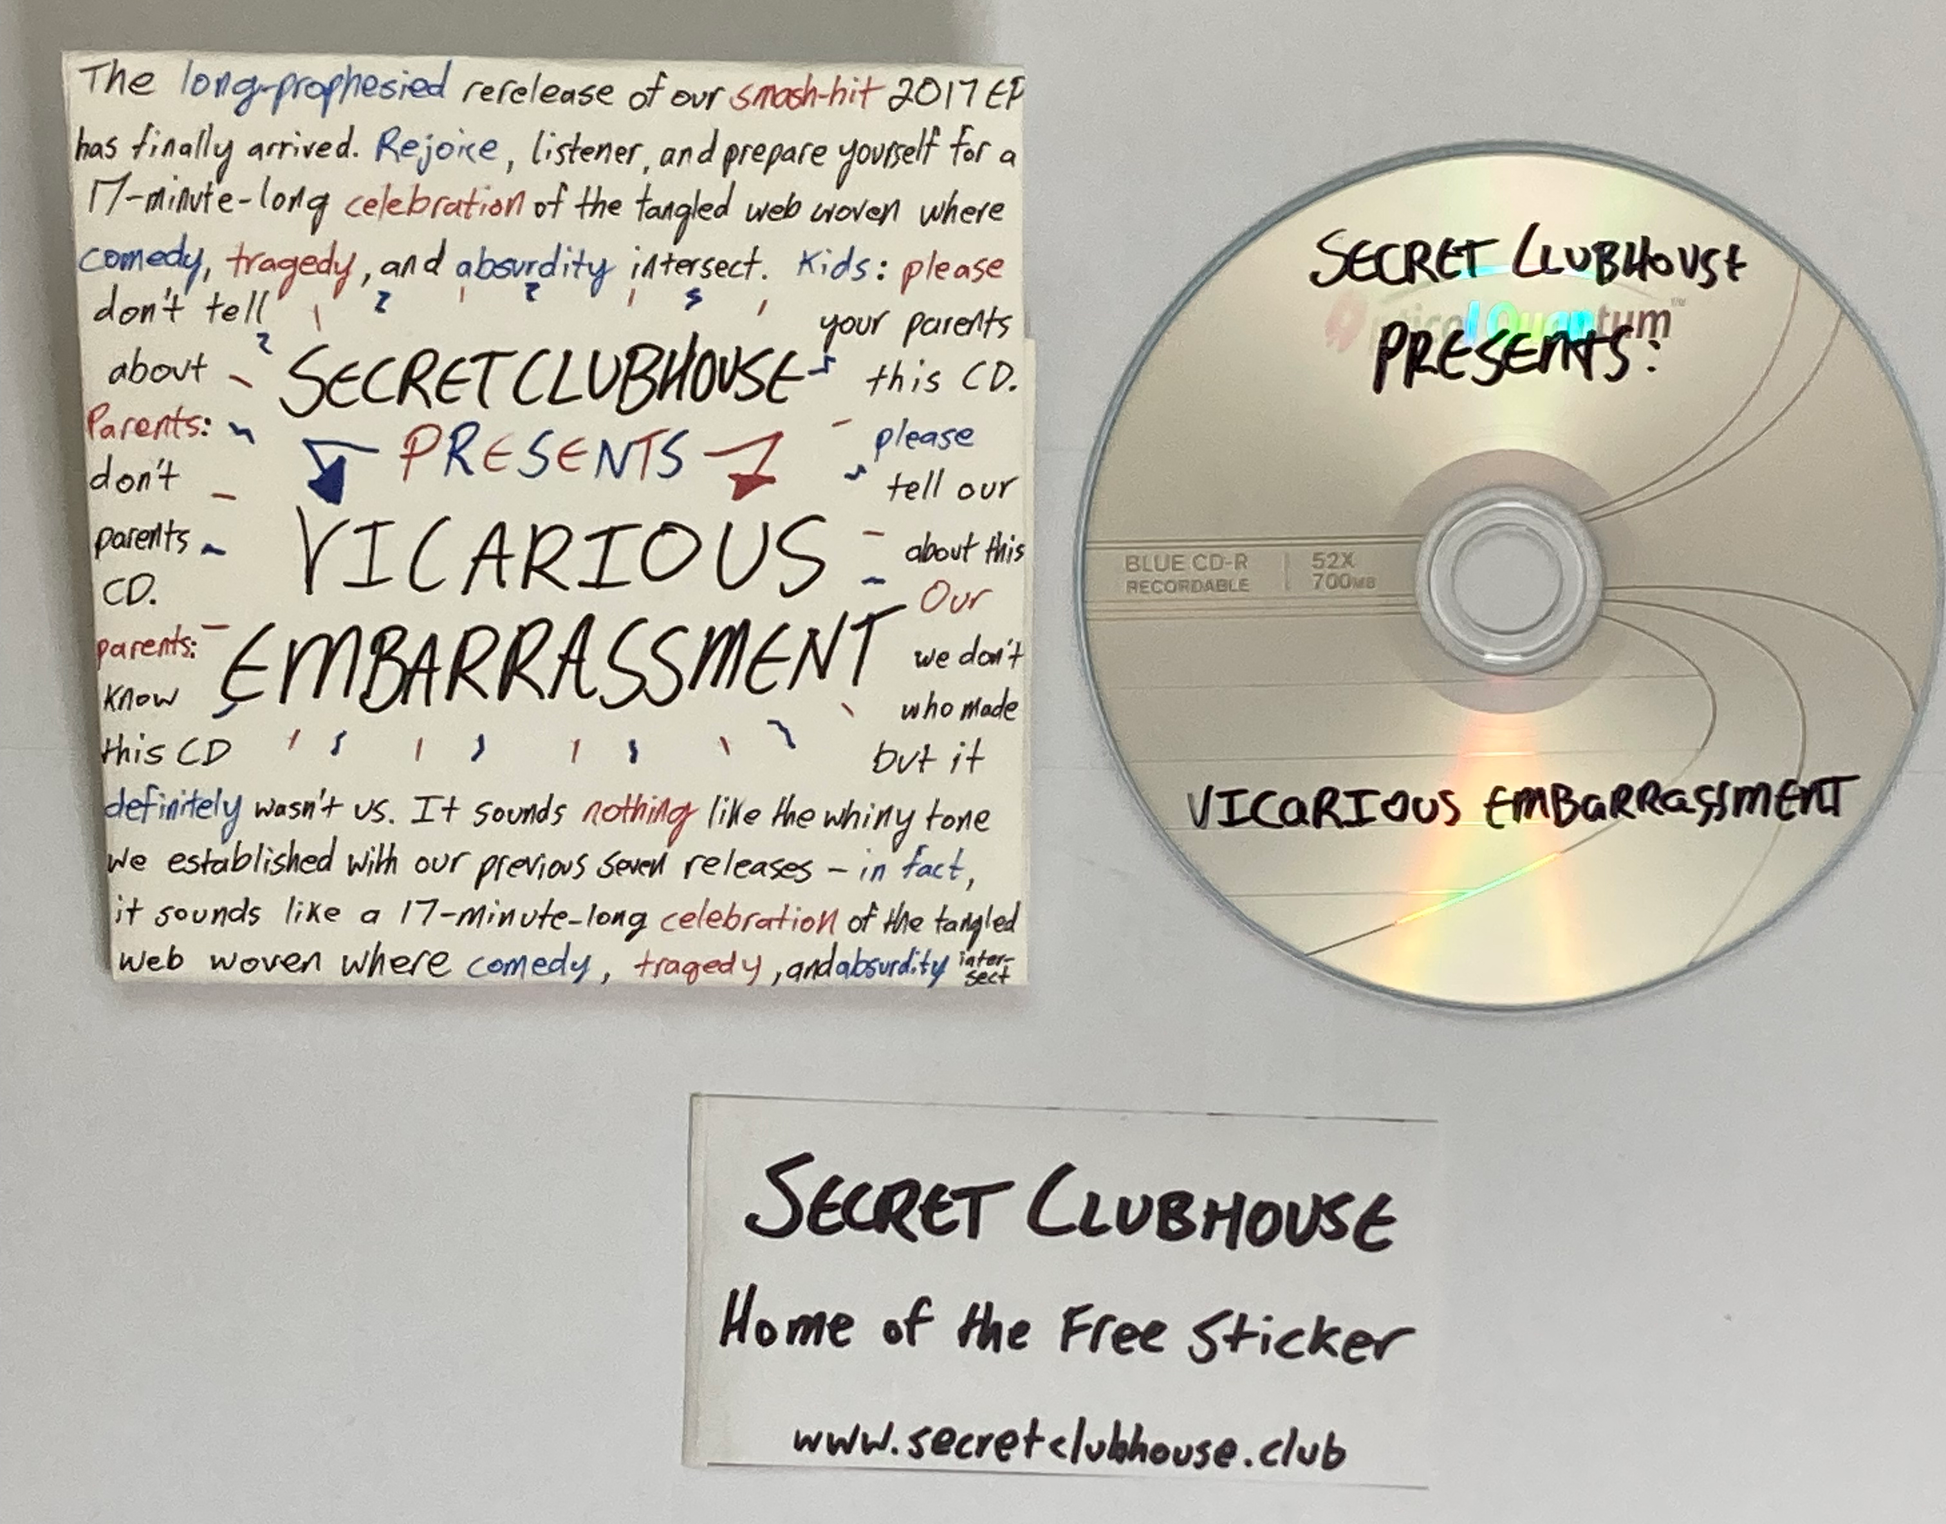 The long-prophesied rerelease of our smash-hit 2017 EP
has finally arrived. Rejoice, listener, and prepare yourself for a
17-minute-long celebration of the tangled web woven where
comedy, tragedy, and absurdity intersect. Kids: please
don't tell your parents
about this CD.
Parents: please
don't tell our
parents about this
CD. Our
parents: we don't
know who made
this CD but it
SECRET CLUBHOUSE
PRESENTS
VICARIOUS
EMBARRASSMENT
definitely wasn't us. It sounds nothing like the whiny tone
we established with our previous seven releases - in fact,
it sounds like a 17-minute-long celebration of the tangled
web woven where comedy, tragedy, and absurdity inter-
sect
SECRET CLUBHOUSE
Optical Quantum™
PRESENTS:
BLUE CD-R 52X
RECORDABLE 700MB
VICARIOUS EMBARRASSMENT
SECRET CLUBHOUSE
Home of the Free Sticker
www.secretclubhouse.club